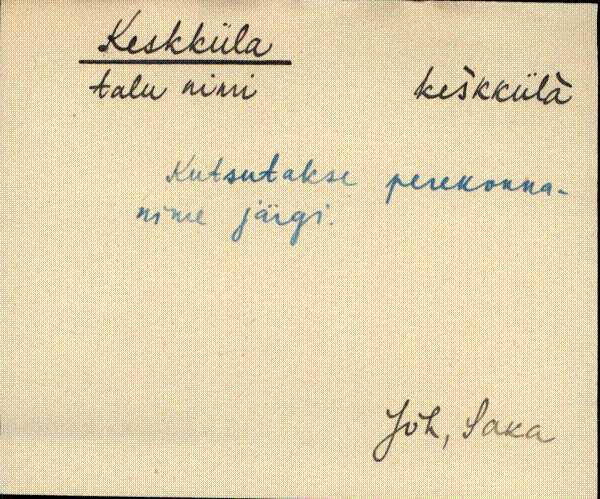 Keskküla
talu nimi keškkülà
Kutsutakse perekonna-
nime järgi.
Jõh, Saka